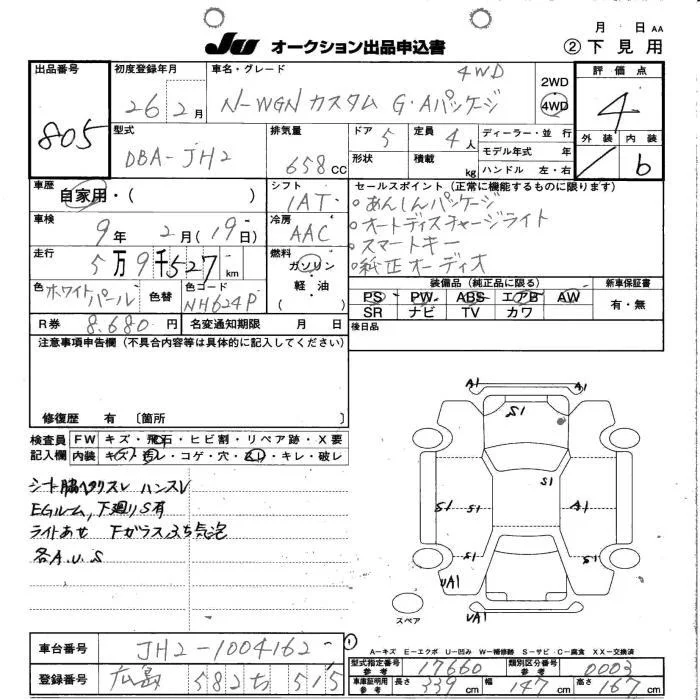 JU オークション出品申込書
月 日 AA
② 下見用
出品番号
805
初度登録年月
26年2月
車名・グレード
4WD
N-WGN カスタム G・Aパッケージ
2WD
4WD
評価点
4
外装 内装
b
型式
DBA-JH2
排気量
658 CC
ドア 5
定員 4人
形状
積載 kg
ディーラー・並行
モデル年式 年
ハンドル 左・右
車歴
自家用・( )
シフト
IAT
セールスポイント (正常に機能するものに限ります)
あんしんパッケージ
オートディスチャージライト
スマートキー
純正オーディオ
車検
9年 2月(19日)
冷房
AAC
走行
5万9千527km
燃料
ガソリン・
軽油・
( )
色 ホワイトパール
色替
色コード NH624P
装備品 (純正品に限る)
PS PW ABS エアB AW
SR ナビ TV カワ
新車保証書
有・無
R券 8.680円
名変通知期限 月 日
後日品
注意事項申告欄 (不具合内容等は具体的に記入してください)
修復歴 有 〔箇所 〕
検査員記入欄
FW キズ・飛石・ヒビ割・リペア跡・X要
内装 キズ・汚レ・コゲ・穴・スレ・キレ・破レ
シート脇ヘタリスレ ハンスレ
EGルーム,下廻りS有
ライトあせ Fガラスふち気泡
各A.U.S
A1 A1
S1
S1
S1 S1 A1
S1 S1
UA1
UA1
スペア
A−キズ E−エクボ U−凹み W−補修跡 S−サビ C−腐食 XX−交換済
車台番号
JH2-1004162
登録番号
広島 582 ち 515
①
型式指定番号 参考 17660
類別区分番号 参考 0003
車庫証明用 参考 長さ 339cm 幅 147cm 高さ 167cm